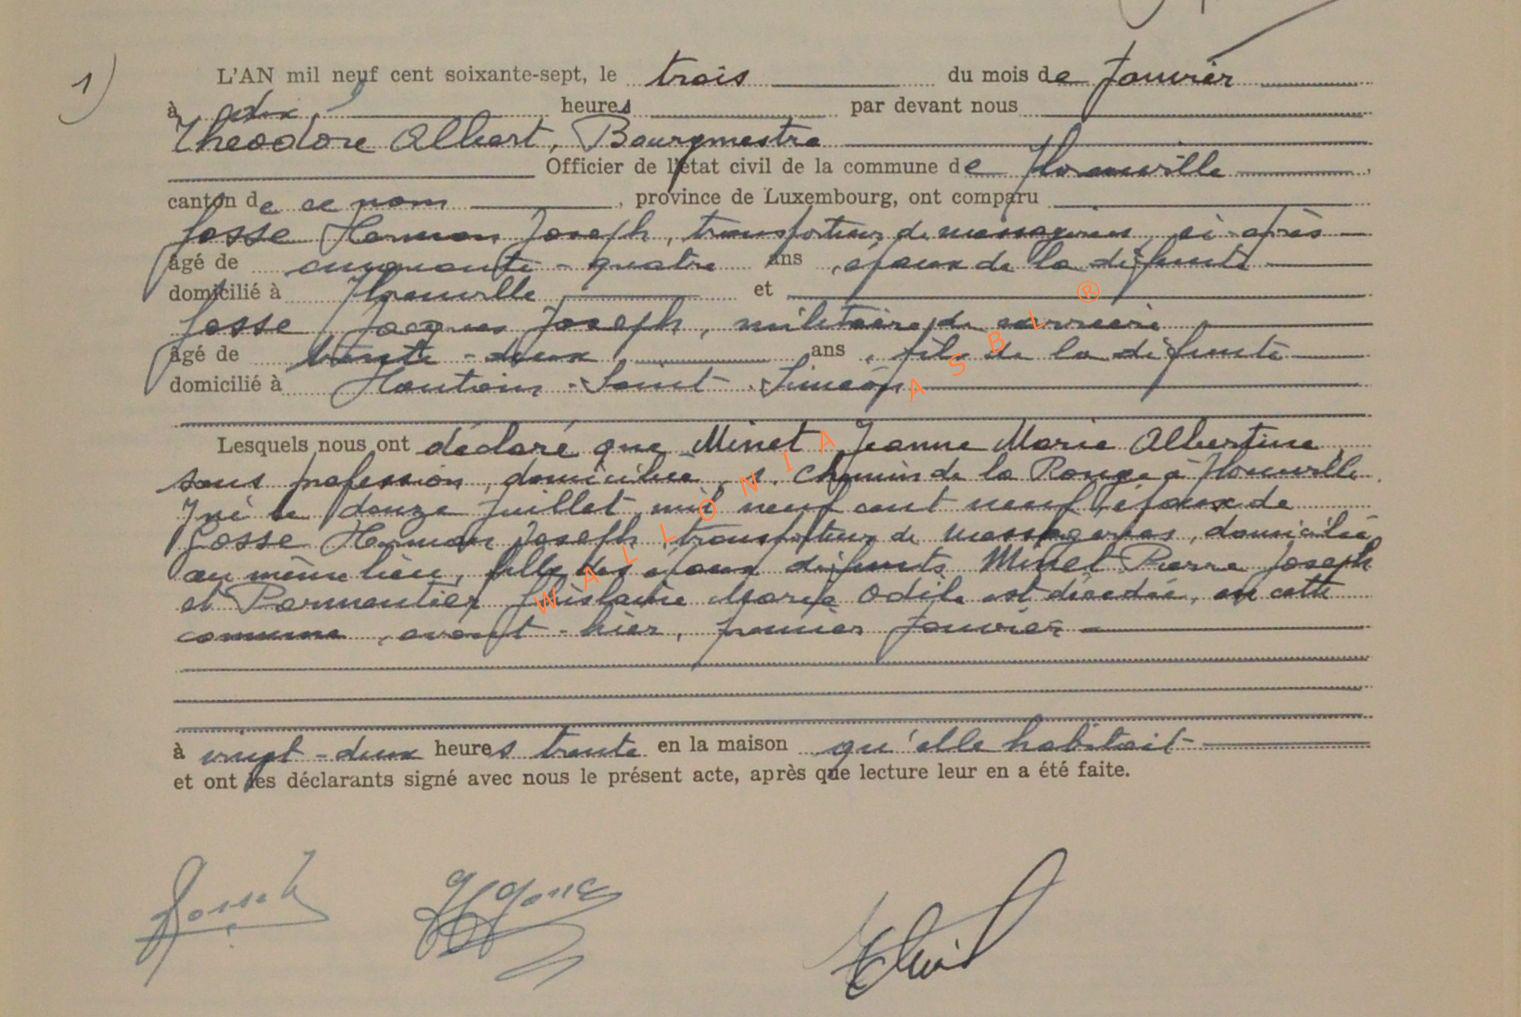 1)
L'AN mil neuf cent soixante-sept, le trois du mois de Janvier
à dix heures par devant nous
Théodore Albert, Bourgmestre
Officier de l'état civil de la commune de Florenville,
canton de ce nom, province de Luxembourg, ont comparu
Gosse Herman Joseph, transporteur de messageries, ci-après
âgé de cinquante-quatre ans, époux de la défunte
domicilié à Florenville et
Gosse Jacques Joseph, militaire de carrière
âgé de trente-deux ans, fils de la défunte
domicilié à Houtain-Saint-Siméon
Lesquels nous ont déclaré que Minet Jeanne Marie Albertine,
sans profession, domiciliée, 1. Chemin de la Ronge à Florenville,
y né le douze Juillet mil neuf cent neuf, épouse de
Gosse Herman Joseph transporteur de messageries, domicilié
au même lieu, fille des époux défunts Minet Pierre Joseph
et Parmentier Ghislaine Marie Odile est décédée, en cette
commune, avant-hier, premier Janvier
à vingt-deux heures trente en la maison qu'elle habitait
et ont les déclarants signé avec nous le présent acte, après que lecture leur en a été faite.
WALLONIA ASBL ®